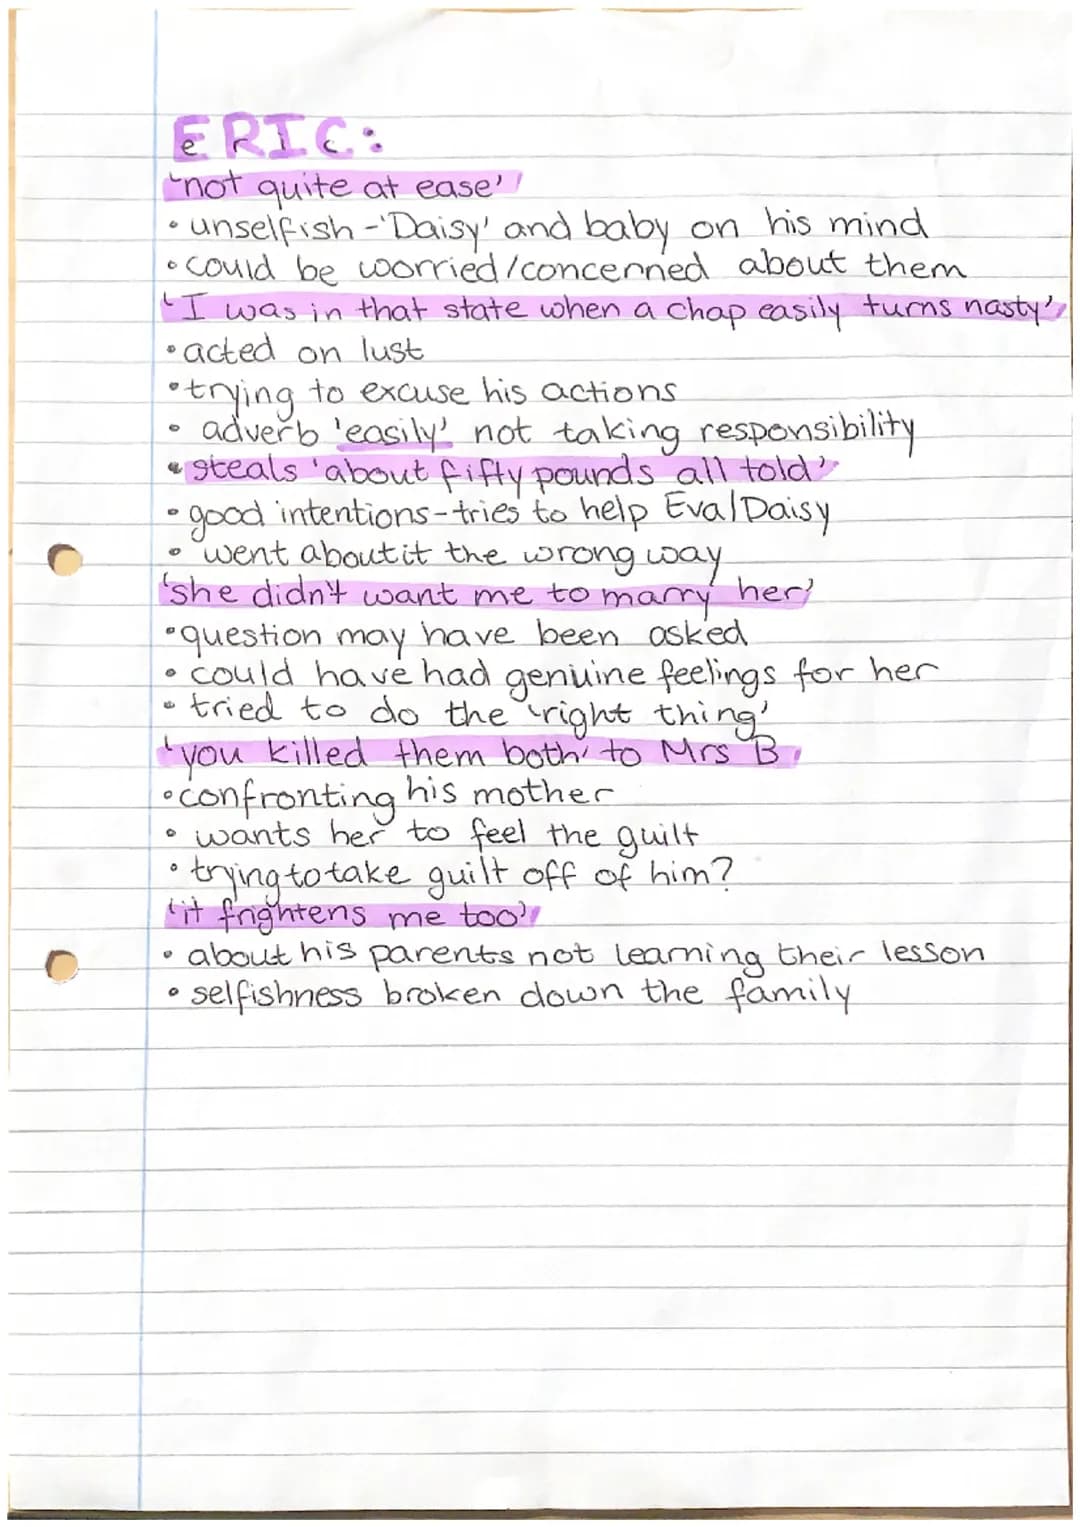 ERIC:
'not quite at ease'
• unselfish - 'Daisy' and baby on his mind
• could be worried/concerned about them
'I was in that state when a chap easily turns nasty'
• acted on lust
• trying to excuse his actions
• adverb 'easily' not taking responsibility
• steals 'about fifty pounds all told'
• good intentions - tries to help Eva/Daisy
• went about it the wrong way
'she didn't want me to marry her'
• question may have been asked
• could have had genuine feelings for her
• tried to do the 'right thing'
'you killed them both' to Mrs B
• confronting his mother
• wants her to feel the guilt
• trying to take guilt off of him?
'it frightens me too'
• about his parents not learning their lesson
• selfishness broken down the family